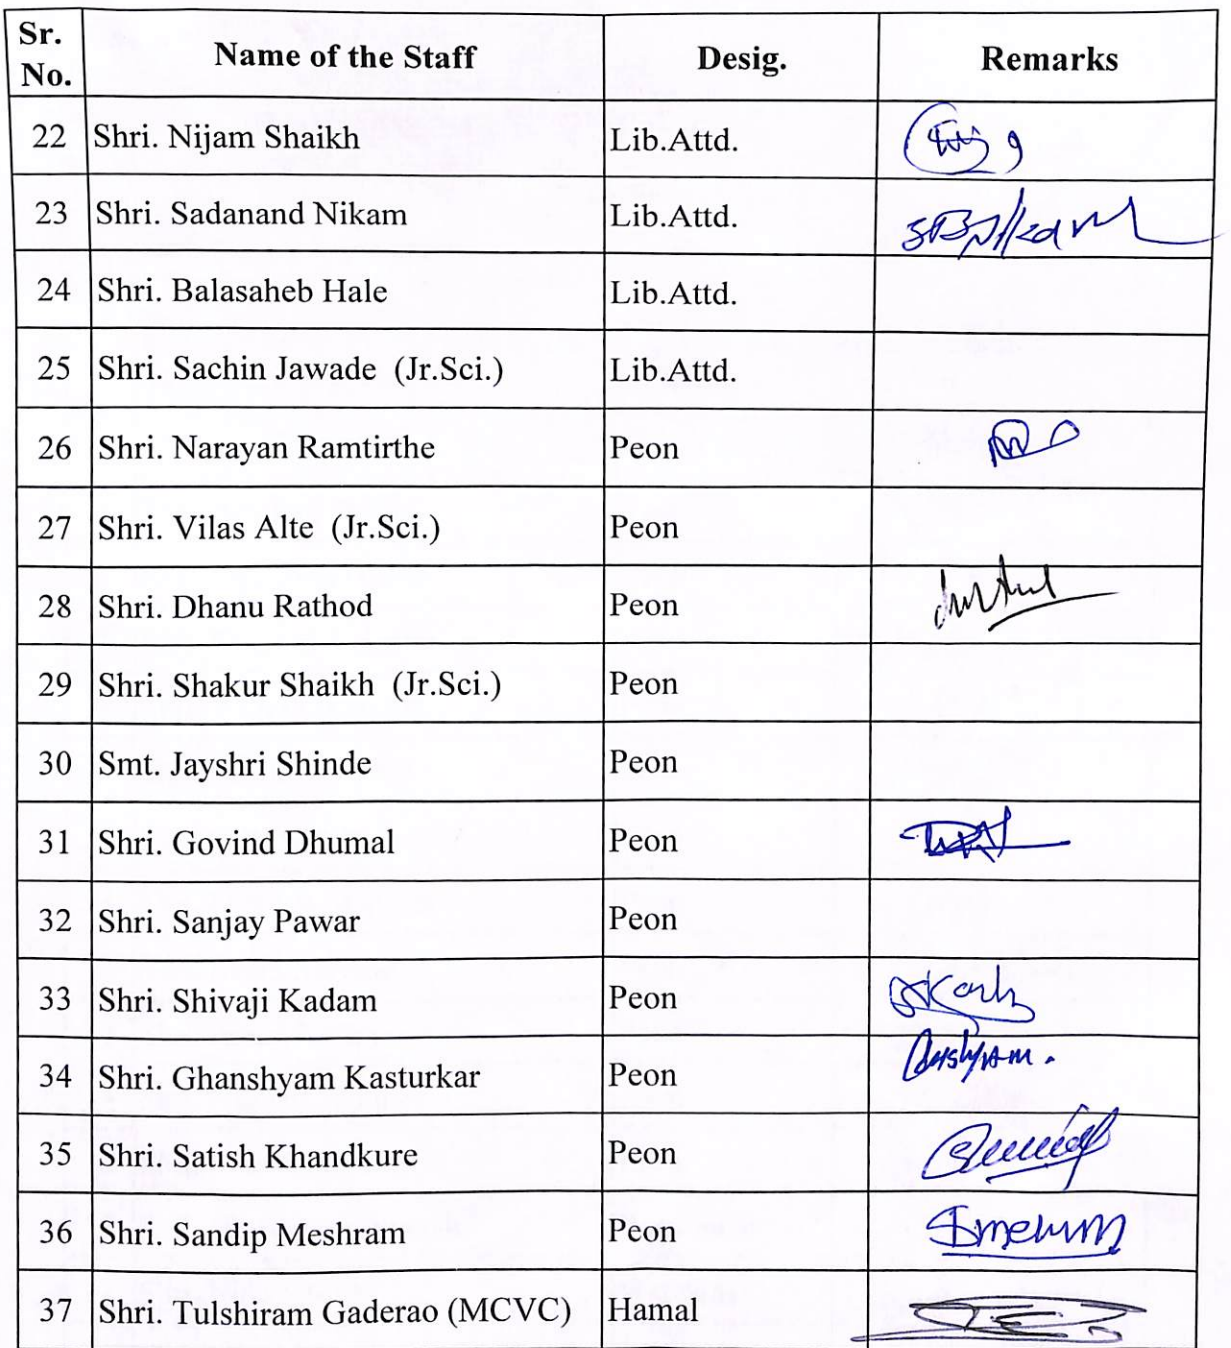 Sr. No. Name of the Staff Desig. Remarks
22 Shri. Nijam Shaikh Lib.Attd.
23 Shri. Sadanand Nikam Lib.Attd. SBNikam
24 Shri. Balasaheb Hale Lib.Attd.
25 Shri. Sachin Jawade (Jr.Sci.) Lib.Attd.
26 Shri. Narayan Ramtirthe Peon
27 Shri. Vilas Alte (Jr.Sci.) Peon
28 Shri. Dhanu Rathod Peon
29 Shri. Shakur Shaikh (Jr.Sci.) Peon
30 Smt. Jayshri Shinde Peon
31 Shri. Govind Dhumal Peon
32 Shri. Sanjay Pawar Peon
33 Shri. Shivaji Kadam Peon
34 Shri. Ghanshyam Kasturkar Peon
35 Shri. Satish Khandkure Peon
36 Shri. Sandip Meshram Peon
37 Shri. Tulshiram Gaderao (MCVC) Hamal